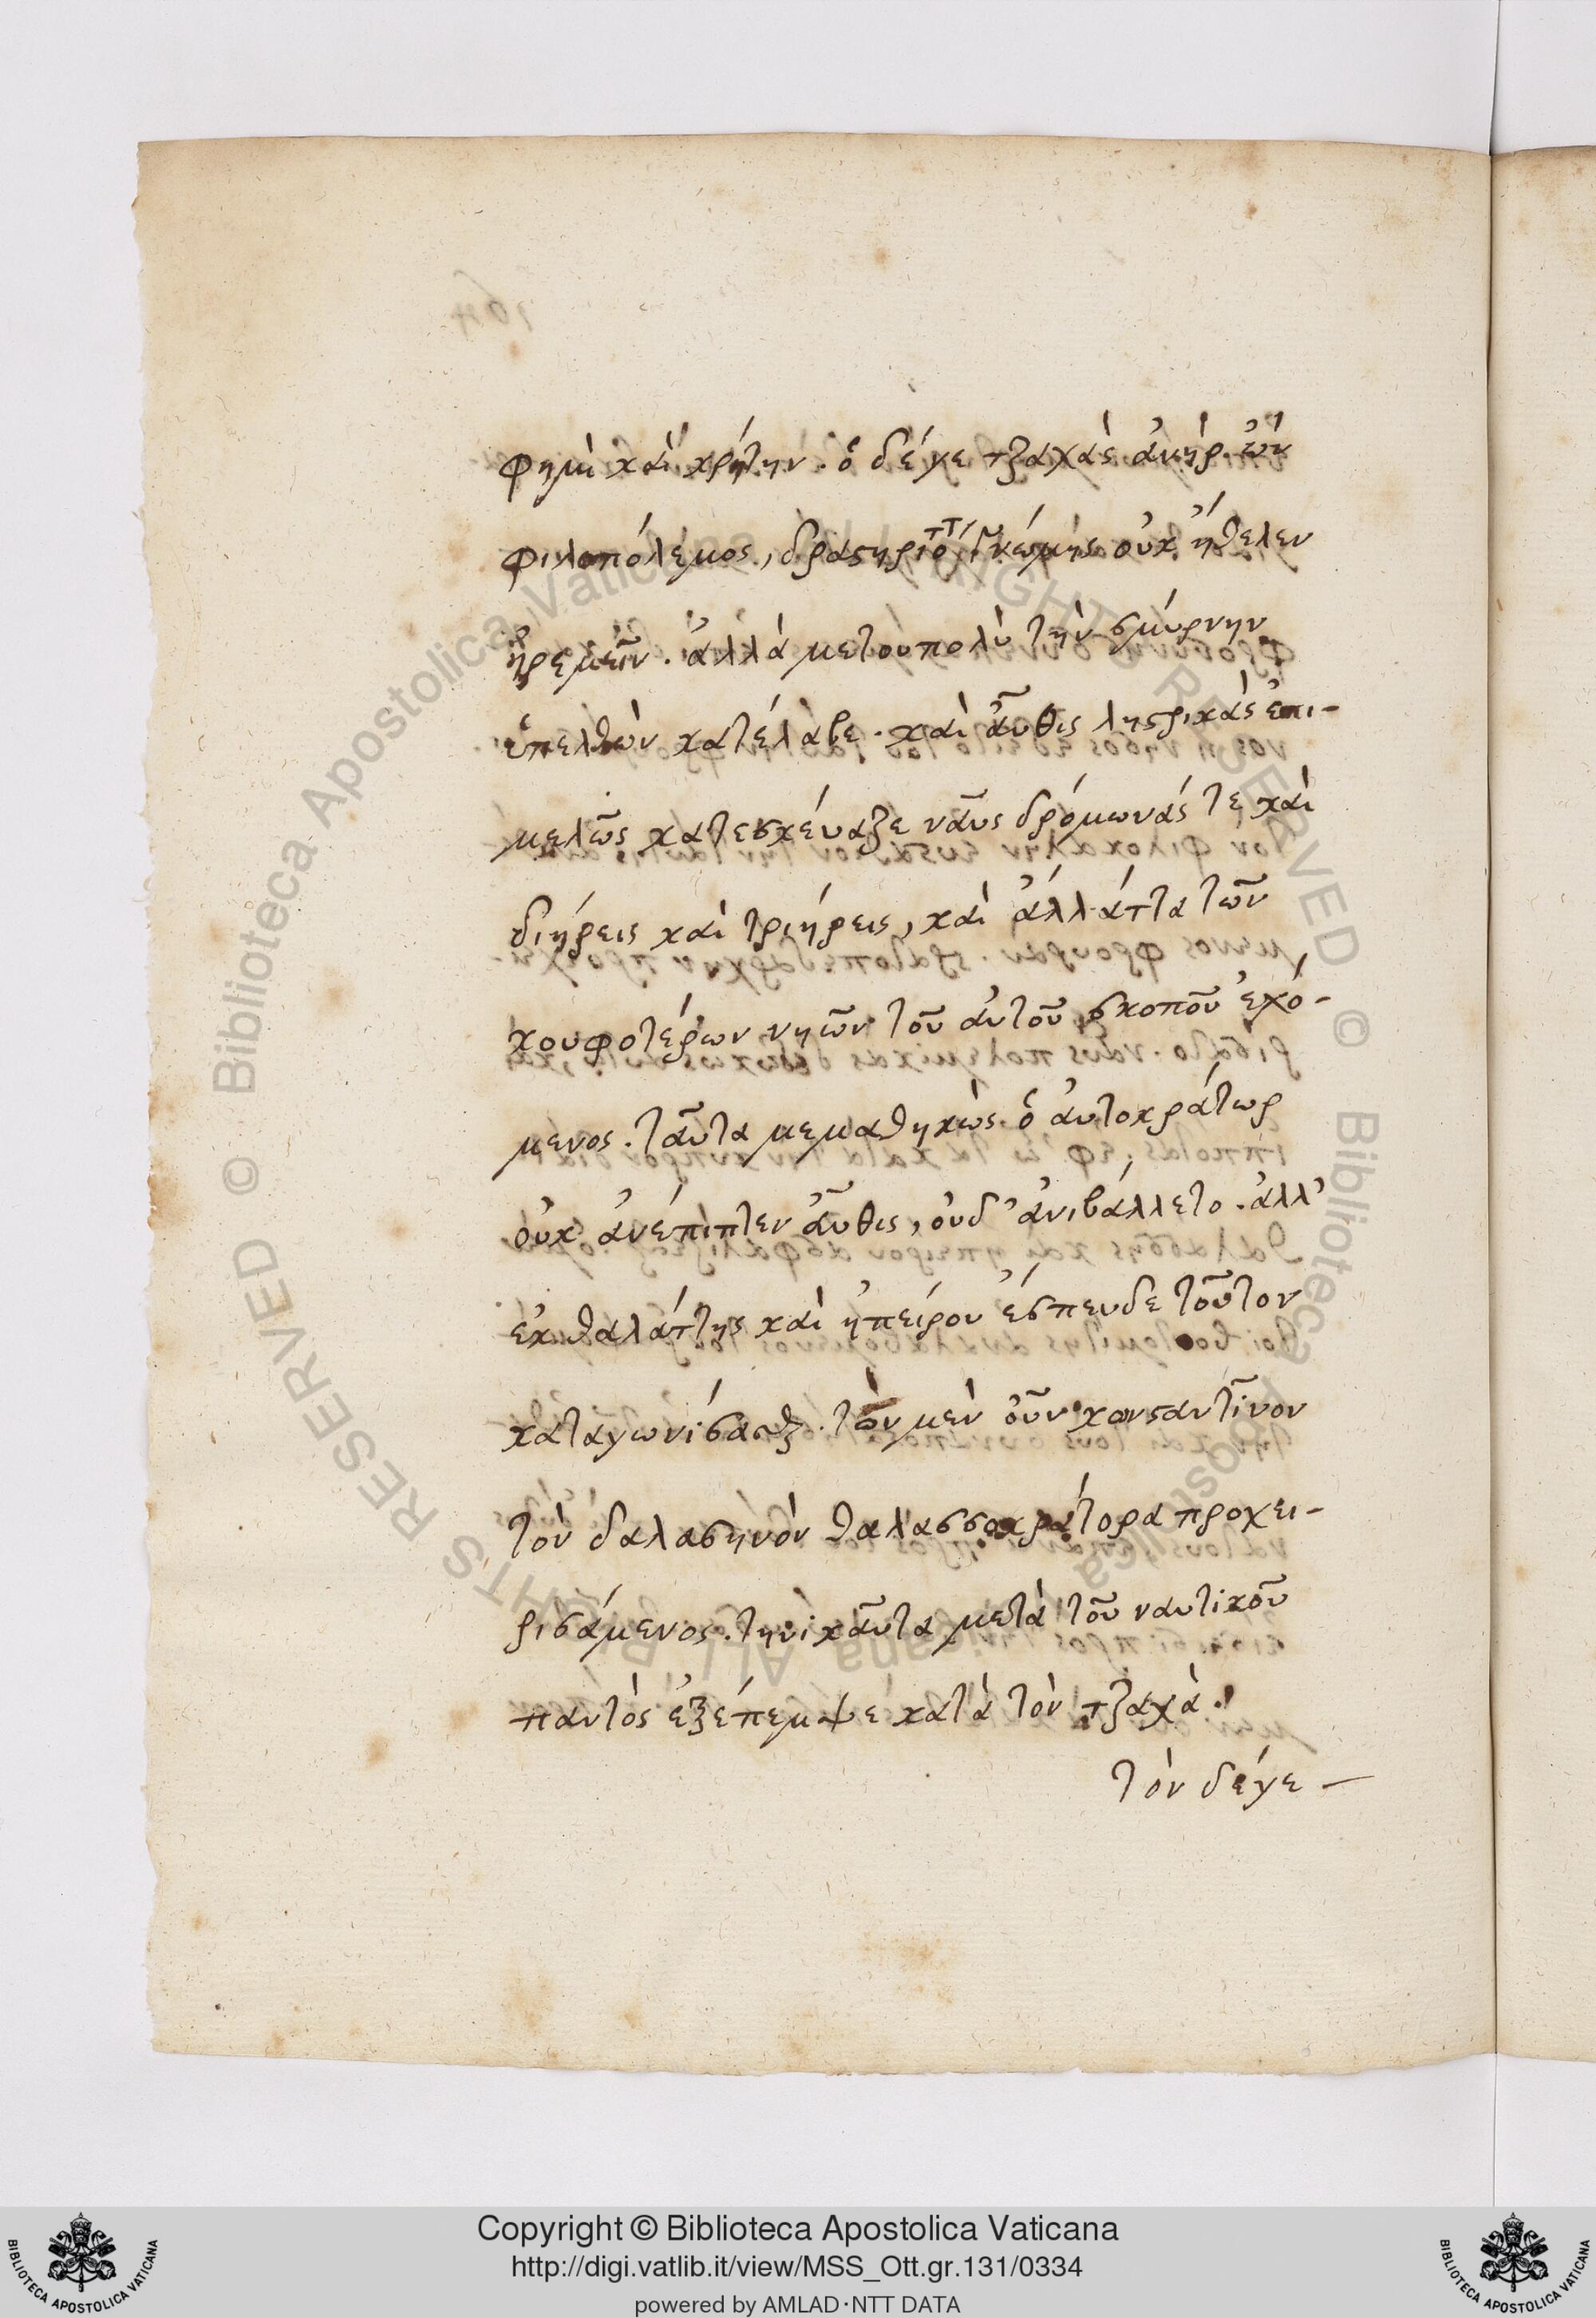 φημὶ καὶ κρήτην. ὁ δέγε τζαχὰς ἀνὴρ ὢν
φιλοπόλεμος, δραστήριο γνώμης οὐκ ἤθελεν
ἠρεμεῖν. ἀλλὰ μετουπολὺ τὴν σμύρνην
ἐπελθὼν κατέλαβε. καὶ αὖθις ληστρικὰς ἐπι-
μελῶς κατεσκεύαζε ναῦς δρόμωνάς τε καὶ
διήρεις καὶ τριήρεις, καὶ ἀλλάττα τῶν
κουφοτέρων νηῶν τοῦ αὐτοῦ σκοποῦ ἐχό-
μενος. ταῦτα μεμαθηκὼς ὁ αὐτοκράτωρ
οὐκ ἀνέπιπτεν αὖθις, οὐδ' ἀνιβάλλετο. ἀλλ'
ἐκ θαλάττης καὶ ἠπείρου ἔσπευδε τοῦτον
καταγωνίσασθαι. τὸν μὲν οὖν κωνσταντῖνον
τὸν δαλασηνὸν θαλασσοκράτορα προχει-
ρισάμενος. τηνικαῦτα μετὰ τοῦ ναυτικοῦ
παντὸς ἐξέπεμψε κατὰ τὸν τζαχὰ.
τὸν δέγε -
Copyright © Biblioteca Apostolica Vaticana
http://digi.vatlib.it/view/MSS_Ott.gr.131/0334
powered by AMLAD·NTT DATA
BIBLIOTECA APOSTOLICA VATICANA
BIBLIOTECA APOSTOLICA VATICANA